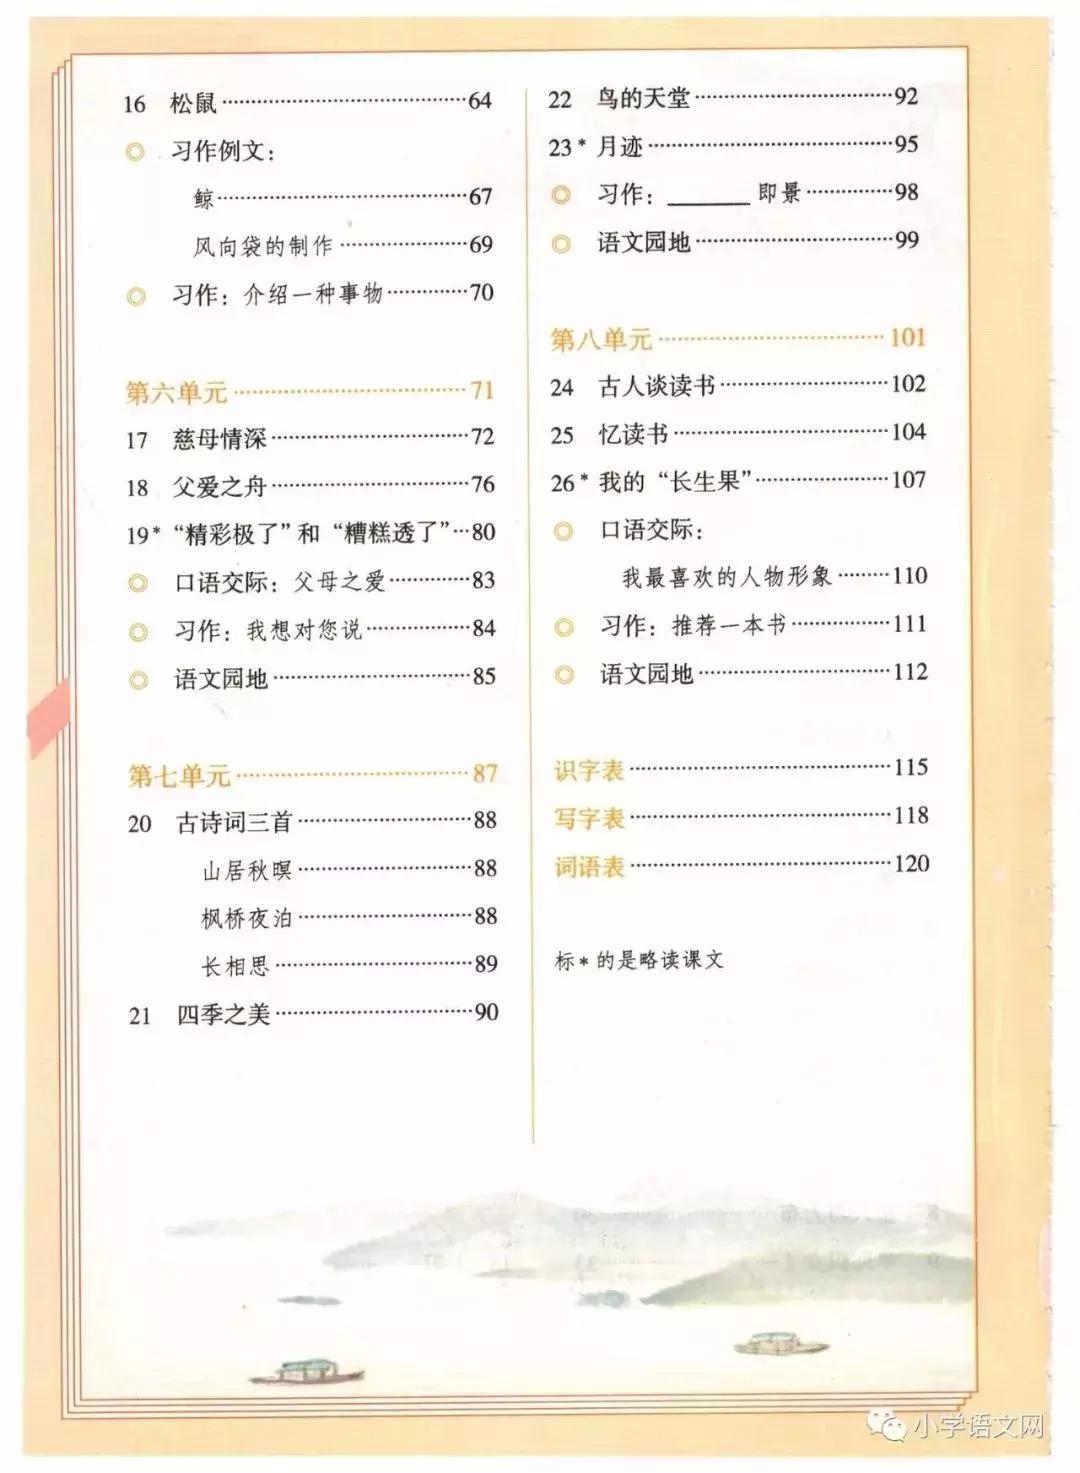 16 松鼠……64
习作例文：
鲸……67
风向袋的制作……69
习作：介绍一种事物……70
第六单元……71
17 慈母情深……72
18 父爱之舟……76
19* “精彩极了”和“糟糕透了”…80
口语交际：父母之爱……83
习作：我想对您说……84
语文园地……85
第七单元……87
20 古诗词三首……88
山居秋暝……88
枫桥夜泊……88
长相思……89
21 四季之美……90
22 鸟的天堂……92
23* 月迹……95
习作：______即景……98
语文园地……99
第八单元……101
24 古人谈读书……102
25 忆读书……104
26* 我的“长生果”……107
口语交际：
我最喜欢的人物形象……110
习作：推荐一本书……111
语文园地……112
识字表……115
写字表……118
词语表……120
标*的是略读课文
小学语文网